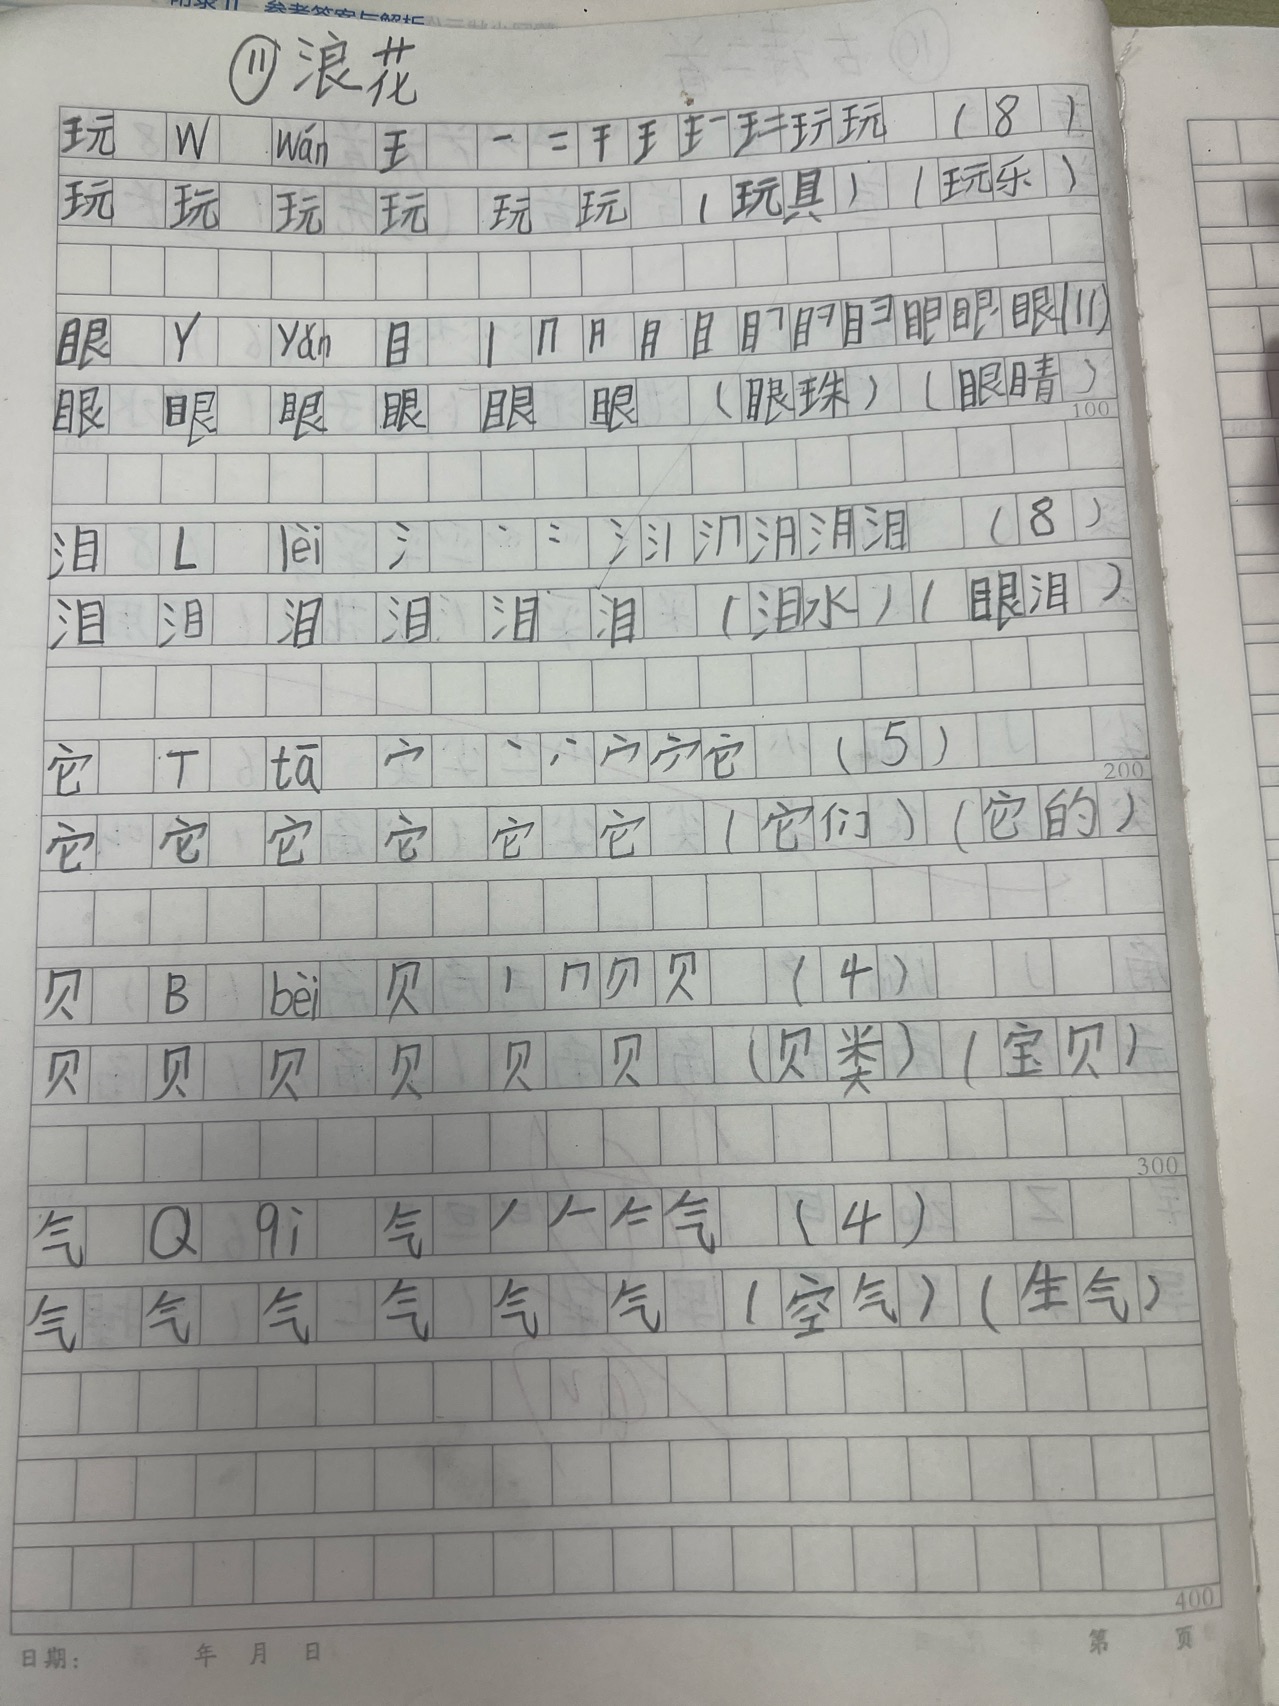 附录几 参考答案与解析
⑪浪花
玩 W wán 王 一 二 千 王 王一 王二 玩 玩 (8)
玩 玩 玩 玩 玩 玩 (玩具) (玩乐)
眼 Y yǎn 目 丨 冂 月 月 目 目㇕ 目 目彐 眼 眼 眼 (11)
眼 眼 眼 眼 眼 眼 (眼珠) (眼睛)
100
泪 L lèi 氵 丶 冫 氵 氵丨 氵冂 泪 泪 泪 (8)
泪 泪 泪 泪 泪 泪 (泪水) (眼泪)
它 T tā 宀 丶 丷 宀 宀 它 (5)
200
它 它 它 它 它 它 (它们) (它的)
贝 B bèi 贝 丨 冂 贝 贝 (4)
贝 贝 贝 贝 贝 贝 (贝类) (宝贝)
300
气 Q qì 气 丿 𠂉 气 气 (4)
气 气 气 气 气 气 (空气) (生气)
400
日期: 年 月 日 第 页